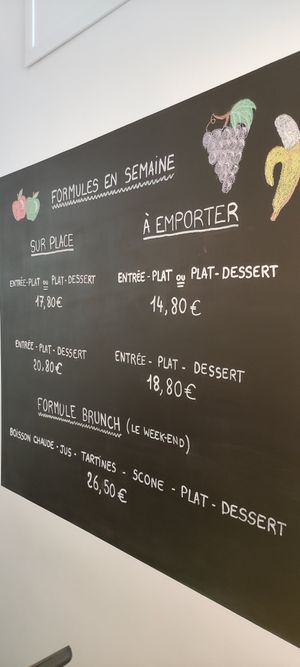 FORMULES EN SEMAINE
SUR PLACE
ENTRÉE-PLAT OU PLAT-DESSERT
17,80€
ENTRÉE - PLAT - DESSERT
20,80€
À EMPORTER
ENTRÉE - PLAT OU PLAT - DESSERT
14,80€
ENTRÉE - PLAT - DESSERT
18,80€
FORMULE BRUNCH (LE WEEK-END)
BOISSON CHAUDE - JUS - TARTINES - SCONE - PLAT - DESSERT
26,50€